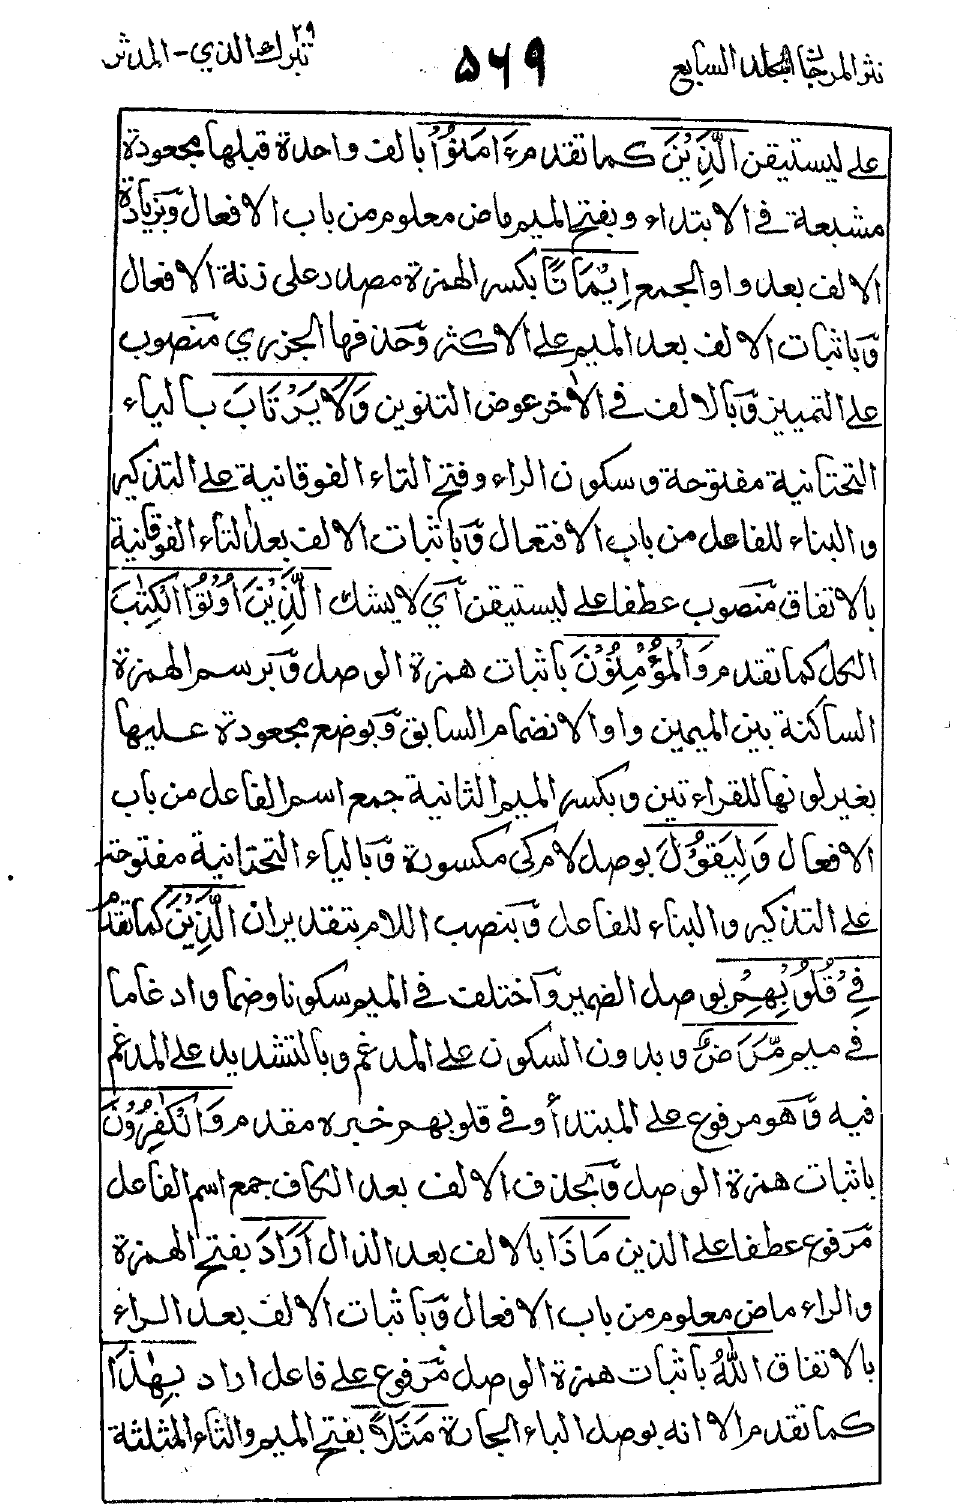 نثر المرجان المجلد السابع ۵۶۹ تبرك الذي ٢٩ - المدثر
على ليستيقن الَّذِيْنَ كما تقدم مرءَ امَنُوْٓا بالف واحدة قبلها مجعودة
مشبعة في الابتداء وبفتح الميم ماض معلوم من باب الافعال وَبزيادة
الالف بعد واو الجمع اِيْمَانًا بكسر الهمزة مصدر على زنة الافعال
وَباثبات الالف بعد الميم على الاكثر وَحذفها الجزري مَنصوب
على التمييز وَبالالف في الاخر عوض التنوين وَلَا يَرْتَابَ بالياء
التحتانية مفتوحة وسكون الراء وفتح التاء الفوقانية على التذكير
والبناء للفاعل من باب الافتعال وَباثبات الالف بعد التاء الفوقانية
بالاتفاق مَنصوب عطفا على ليستيقن اَي لا يشك الَّذِيْنَ اُوْتُوا الْكِتٰبَ
الكل كما تقدم وَالْمُؤْمِنُوْنَ باثبات همزة الوصل وَبرسم الهمزة
الساكنة بين الميمين واوا لانضمام السابق وَبوضع مجعودة عليها
بغير لونها للقراءتين وبكسر الميم الثانية جمع اسم الفاعل من باب
الافعال وَلِيَقُوْلَ بوصل لام كي مكسورة وَبالياء التحتانية مفتوحة
على التذكير والبناء للفاعل وَبنصب اللام بتقدير ان الَّذِيْنَ كما تقدم
فِيْ قُلُوْبِهِمْ بوصل الضمير وَاختلف في الميم سكونا وضما وادغاما
في ميم مَّرَضٌ وبدون السكون على المدغم وبالتشديد على المدغم
فيه وَاهو مرفوع على المبتدأ وفي قلوبهم خبره مقدم وَالْكٰفِرُوْنَ
باثبات همزة الوصل وَبحذف الالف بعد الكاف جمع اسم الفاعل
مَرفوع عطفا على الذين مَاذَا بالالف بعد الذال اَرَادَ بفتح الهمزة
والراء ماض معلوم من باب الافعال وَباثبات الالف بعد الراء
بالاتفاق اللّٰهُ باثبات همزة الوصل مَرفوع على فاعل اراد بِهٰذَا
كما تقدم الا انه بوصل الباء الجارة مَثَلًا بفتح الميم والثاء المثلثة